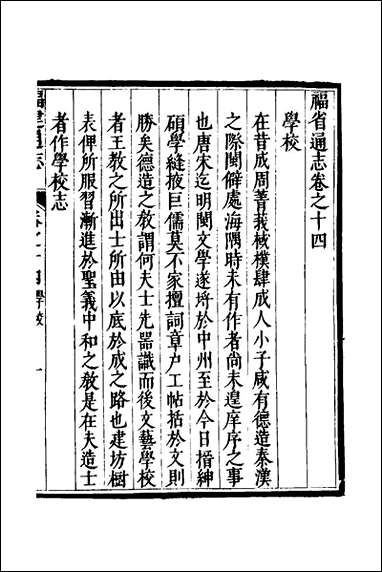 福省通志卷之十四
學校
在昔成周菁莪棫樸肆成人小子咸有德造秦漢
之際閩僻處海隅時未有作者尚未遑庠序之事
也唐宋迄明閩文學遂埒於中州至於今日搢紳
碩學縫掖巨儒莫不家擅詞章户工帖括於文則
勝矣德造之敎謂何夫士先噐識而後文藝學校
者王敎之所出士所由以底於成之路也建坊樹
表俾所服習漸進於聖義中和之敎是在夫造士
者作學校志
通志
卷之十四 學校
一